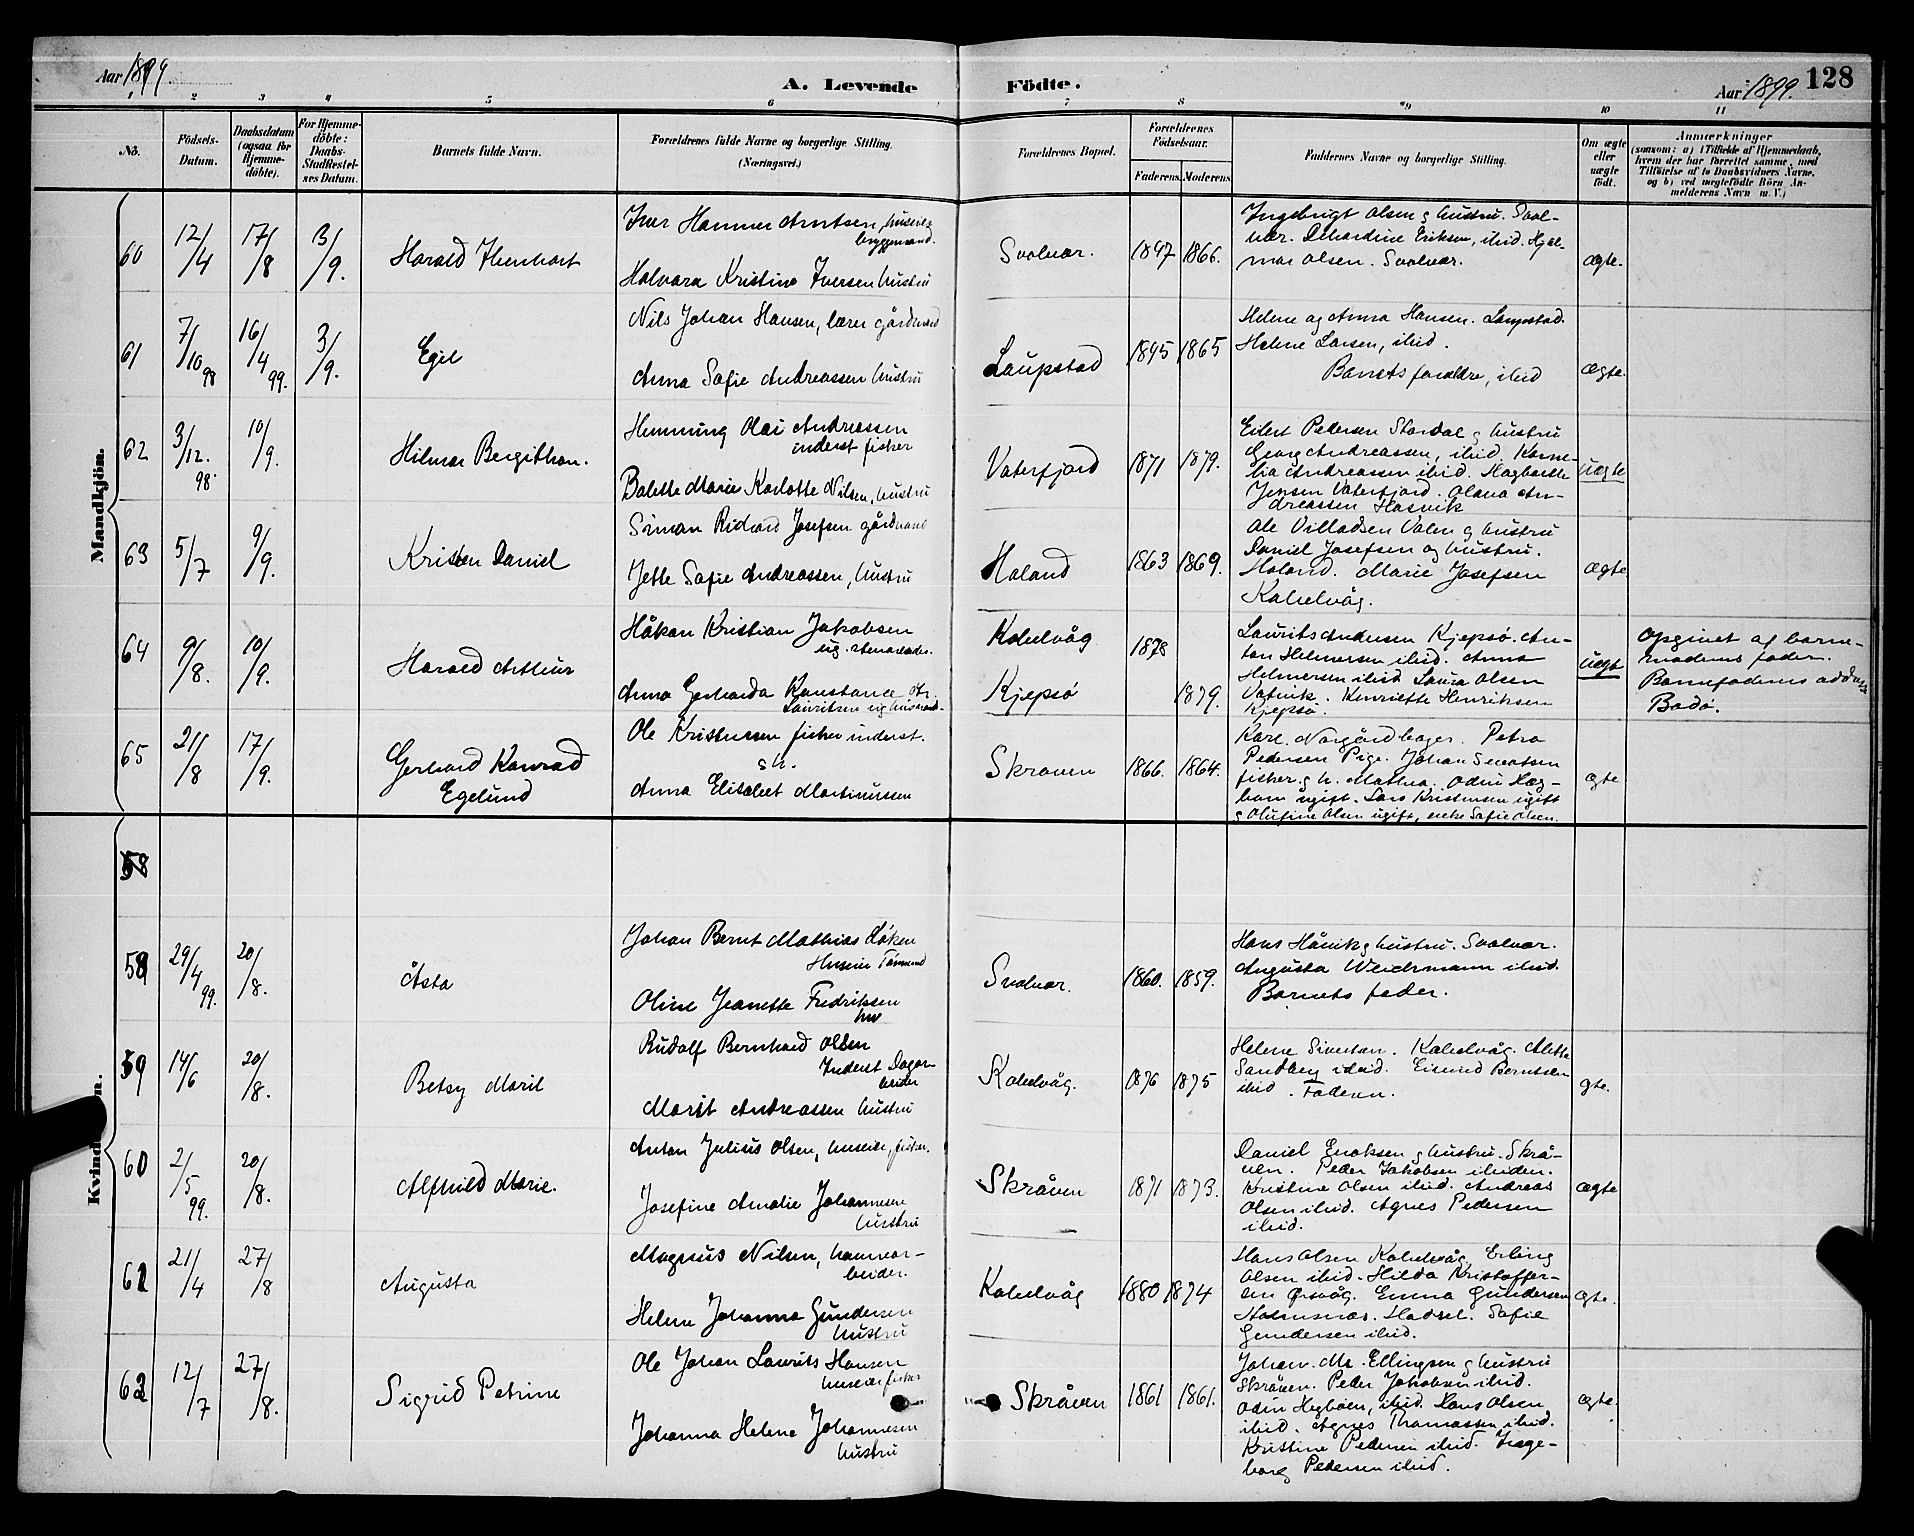 Aar 1899.
A. Levende Födte.
Aar 1899. 128
1 2 3 4 5 6 7 8 9 10 11
No.
Födsels-Datum.
Daabsdatum (ogsaa for Hjemme-döbte).
For Hjemme-döbte: Daabs-Stadfæstel-ses Datum.
Barnets fulde Navn.
Forældrenes fulde Navne og borgerlige Stilling. (Næringsvei.)
Forældrenes Bopæl.
Forældrenes Födselsaar.
Faderens. Moderens.
Faddernes Navne og borgerlige Stilling.
Om ægte eller uægte födt.
Anmærkninger
(saasom: a) i Tilfælde af Hjemmedaab,
hvem der har forrettet samme, med
Tilföielse af to Daabsvidners Navne,
og b) ved uægtefödte Börn An-
melderens Navn m. V.)
Mandkjön.
60 12/4 17/8 3/9.
Harald
Halvara Kristine Iversen hustru
Svolvær. 1847 1866.
Ingebrigt Olsen g hustru. Svol-
vær. Eriksen, ibid. Hjal-
mar Olsen. Svolvær.
ægte.
61 7/10 98 16/4 99. 3/9.
Egil
Nils Johan Hansen, lærer gårdmand
Anna Sofie Andreassen hustru
Laupstad 1845 1865
Helene og Anna Hansen. Laupstad.
Helene Larsen, ibid.
Barnets forældre, ibid
ægte.
62 3/12. 98. 10/9.
Hilmar Bergithon.
Hemming Olai Andreassen
inderst fisker
Balette Marie Karlotte Nilsen, hustru
Vaterfjord 1871 1879.
Eilert Pedersen Stordal g hustru
Georg Andreassen, ibid. Korne-
lia Andreassen ibid.
Jensen Vaterfjord. Olava An-
dreassen Hasvik
uægte
63 5/7 9/9.
Kristen Daniel
Simon Rickard Josefsen gårdmand
Jette Sofie Andreassen, hustru
Holand 1863 1869.
Ole Villadsen Valen g hustru
Daniel Josefsen og hustru.
Holand. Marie Josefsen
Kabelvåg.
ægte
64 9/8. 10/9.
Harald Arthur
Håkon Kristian Jakobsen
Anna Gerharda Konstance
Kabelvåg 1878
Kjepsø 1879.
Laurits Andersen Kjepsø. An-
ton Helmersen ibid. Anna
Helmersen ibid Laura Olsen
Vatvik. Henriette Henriksen
Kjepsø.
uægt
Opgivet af barne-
moderens fader.
Barnefaderens addresse
Bodø.
65 21/8 17/9.
Gerhard Konrad
Egelund
Ole Kristensen fisker inderst.
g h.
Anna Elisabet Martinussen
Skraaven 1866. 1864.
Karl Norgård bager. Petra
Pedersen Pige. Johan
fisker g h. Mathea. Odin Hag-
ugift. Lars Kristensen ugift
g Olufine Olsen ugift, enke Sofie Olsen.
ægte
Kvindekjön.
58
58 29/4 99. 20/8.
Åsta
Johan Bernt Mathias Løken
Oline Jeanette Fredriksen
Svolvær. 1860. 1859.
Hans Håvik g hustru. Svolvær.
Augusta Weichmann ibid.
Barnets fader.
59 14/6 20/8.
Betsy Marit
Rudolf Bernhard Olsen
Inderst Dagar-
beider
Marit Andreassen hustru
Kabelvåg. 1876 1875
Helene Sivertsen. Kabelvåg. Alette
Sandberg ibid. Eivind Berntsen
ibid. Faderen.
gte.
60 2/5 99. 20/8.
Alfhild Marie.
Anton Julius Olsen, fisker.
Josefine Amalie Johannesen
hustru
Skråven 1871 1873.
Daniel Enoksen g hustru. Skrå-
ven. Peder Jakobsen ibiden.
Kristine Olsen ibid. Andreas
Olsen ibid. Agnes Pedersen
ibid.
ægte
61 21/4 27/8
Augusta
Magnus Nilsen, havnear-
beider.
Helene Johanna Gundersen
hustru
Kabelvåg 1880 1874
Hans Olsen Kabelvåg. Erling
Olsen ibid. Hilda Kristoffer-
sen Ørsvåg. Emma Gundersen
Hadsel. Sofie
Gundersen ibid.
ægte.
62 12/7 27/8.
Sigrid Petrine
Ole Johan Laurits Hansen
Johanna Helene Johannesen
hustru
Skråven 1861 1861.
Johan M. Ellingsen g hustru
Skråven. Peder Jakobsen ibid.
Odin ibid. Hans Olsen
ibid. Agnes Thomassen ibid.
Kristine Pedersen ibid. Inge-
borg Pedersen ibid.
ægte.